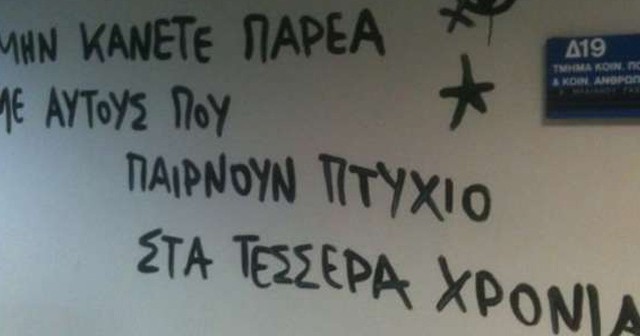 ΜΗΝ ΚΑΝΕΤΕ ΠΑΡΕΑ
ΜΕ ΑΥΤΟΥΣ ΠΟΥ
ΠΑΙΡΝΟΥΝ ΠΤΥΧΙΟ
ΣΤΑ ΤΕΣΣΕΡΑ ΧΡΟΝΙΑ
Δ19
ΤΜΗΜΑ ΚΟΙΝ. ΠΟ
& ΚΟΙΝ. ΑΝΘΡΩΠ